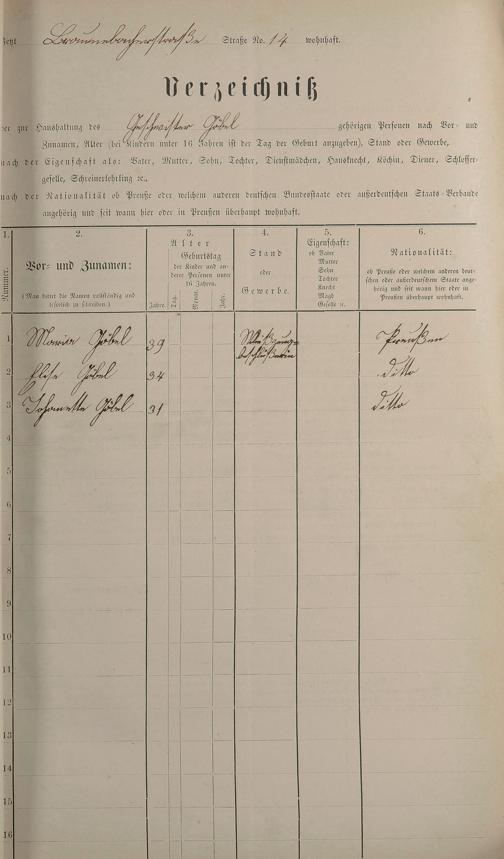 Jetzt Braunebacherstraße Straße No. 14 wohnhaft.
Verzeichniß
der zur Haushaltung des Geschwister Göbel gehörigen Personen nach Vor- und
Zunamen, Alter (bei Kindern unter 16 Jahren ist der Tag der Geburt anzugeben), Stand oder Gewerbe,
nach der Eigenschaft als: Vater, Mutter, Sohn, Tochter, Dienstmädchen, Hausknecht, Köchin, Diener, Schlosser-
geselle, Schreinerlehrling ꝛc.,
nach der Nationalität ob Preuße oder welchem anderen deutschen Bundesstaate oder außerdeutschen Staats-Verbande
angehörig und seit wann hier oder in Preußen überhaupt wohnhaft.
1.
Nummer.
2.
Vor- und Zunamen:
(Man bittet die Namen vollständig und
leserlich zu schreiben.)
3.
Alter
Geburtstag
der Kinder und an-
derer Personen unter
16 Jahren.
Jahre.
Tag.
Monat.
Jahr.
4.
Stand
oder
Gewerbe.
5.
Eigenschaft:
ob Vater
Mutter
Sohn
Tochter
Knecht
Magd
Geselle ꝛc.
6.
Nationalität:
ob Preuße oder welchem anderen deut-
schen oder außerdeutschem Staate ange-
hörig und seit wann hier oder in
Preußen überhaupt wohnhaft.
1 Maria Göbel 39 Preußen
2 Elise Göbel 34 ditto
3 Johannette Göbel 31 ditto
4
5
6
7
8
9
10
11
12
13
14
15
16